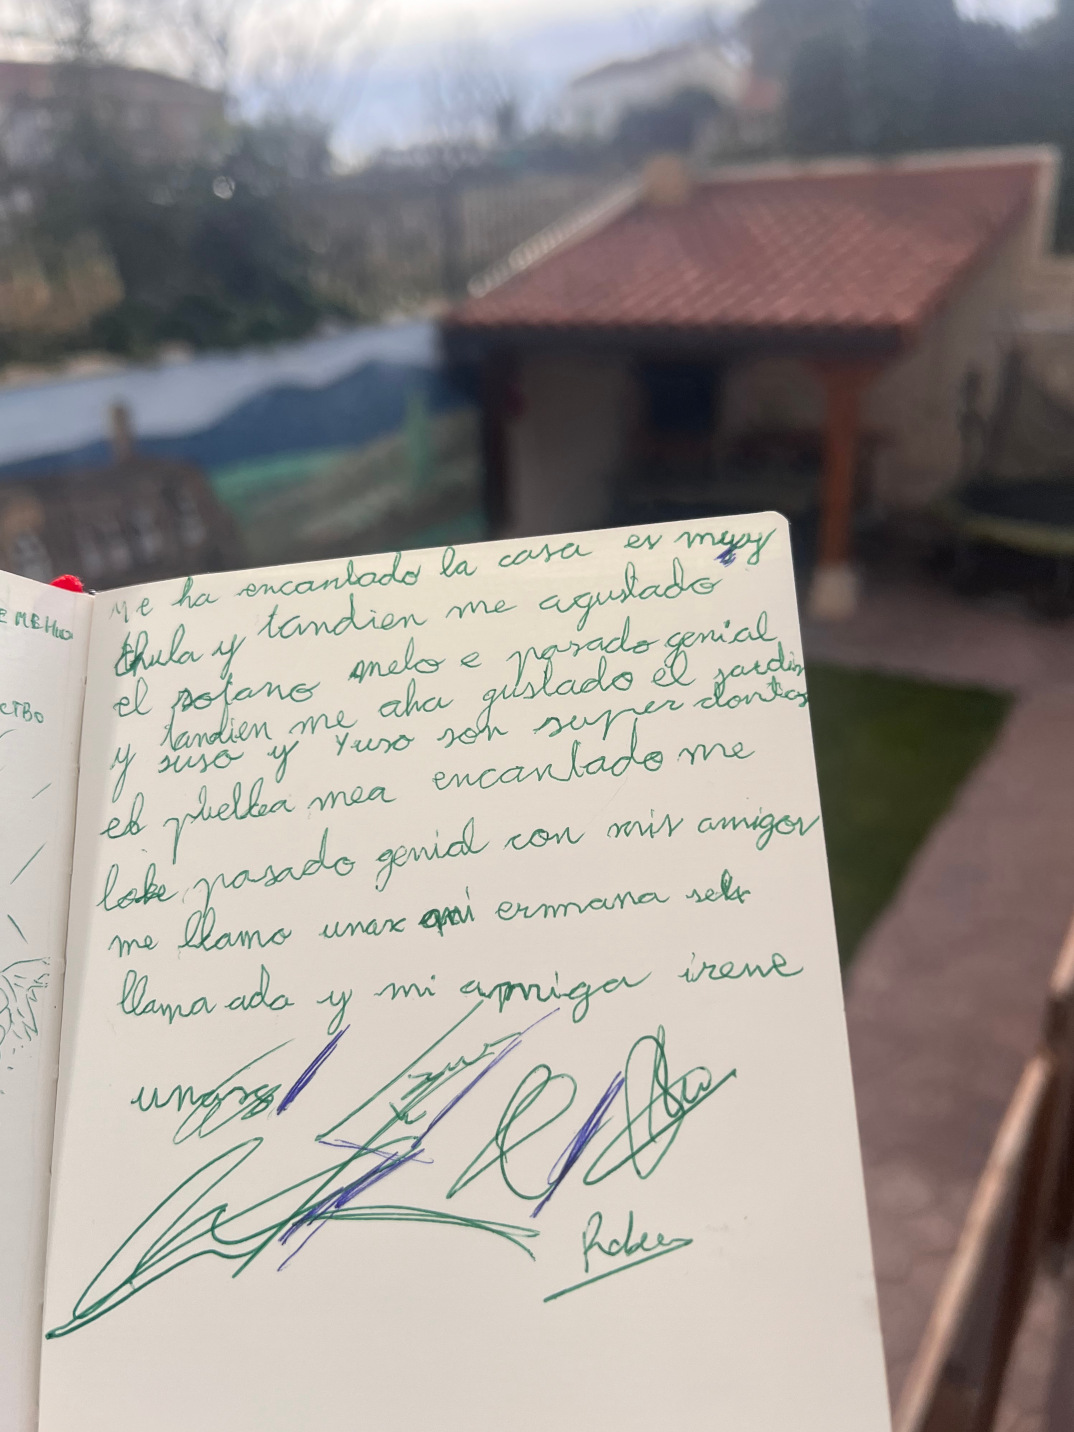 E MEHU
CTBO
me ha encantado la casa es muy
thula y tandien me agustado
el sotano melo e pasado genial
y tandien me aha gustado el jardin
y suso y Yuso son super dontas
eb pueblea mea encantado me
lobe pasado genial con mis amigos
me llamo unax mi ermana se
llama ada y mi amiga irene
unax